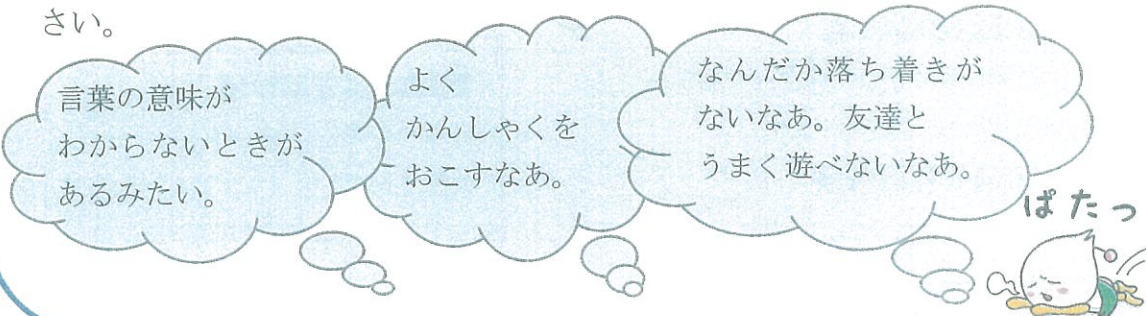 さい。
言葉の意味が
わからないときが
あるみたい。
よく
かんしゃくを
おこすなあ。
なんだか落ち着きが
ないなあ。友達と
うまく遊べないなあ。
ぱたっ